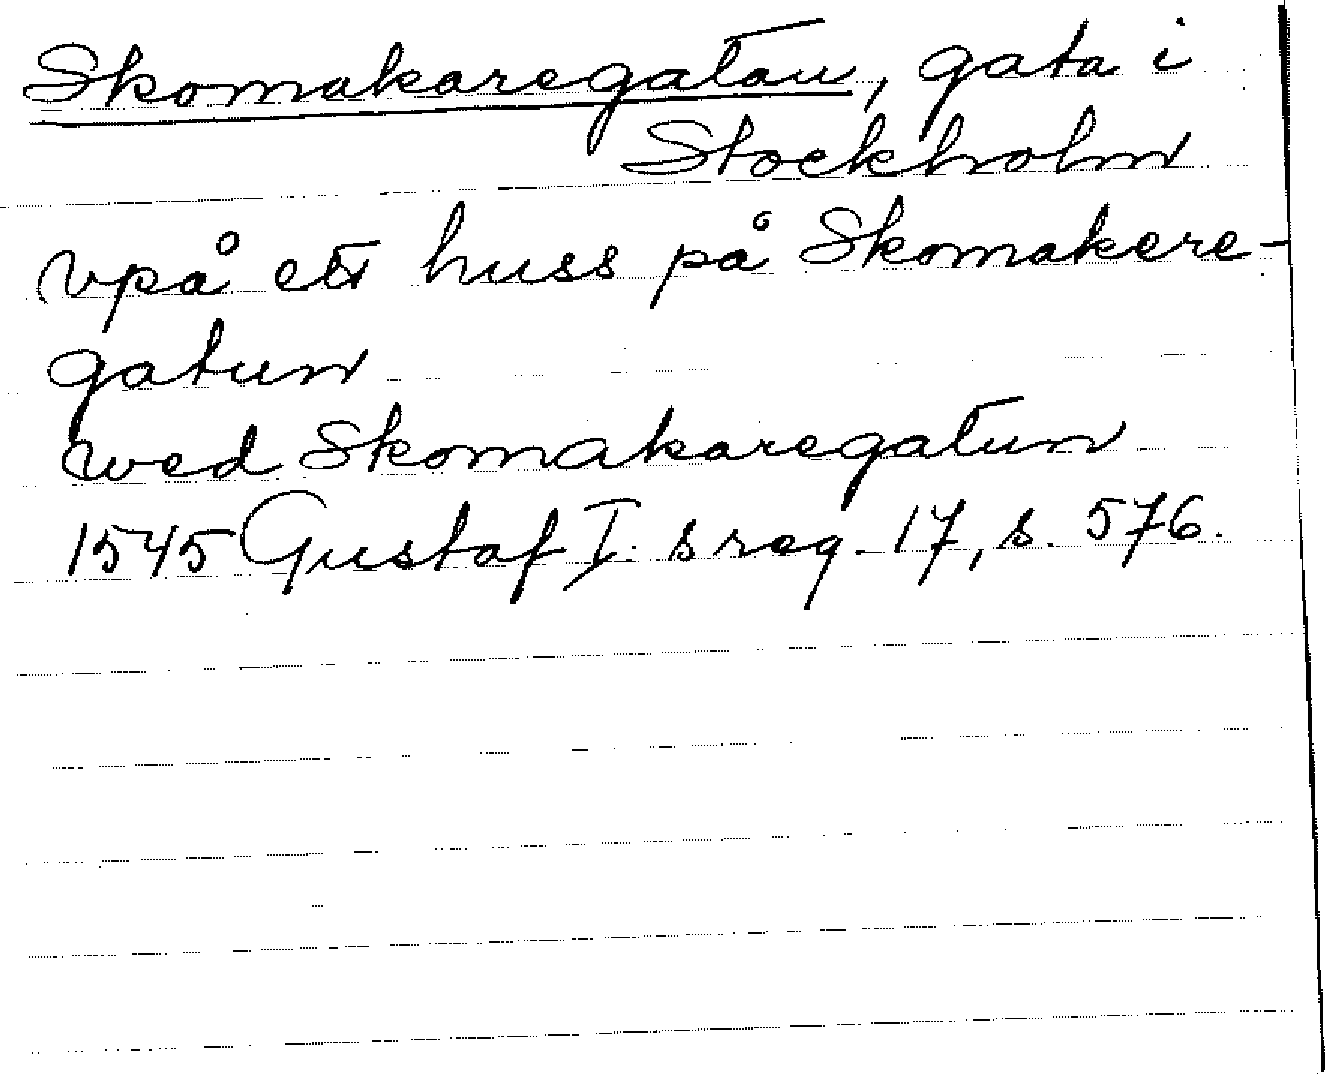 Skomakaregatan, gata i
Stockholm
vpå ett huss på Skomakere-
gatun
wed Skomakaregatun
1545 Gustaf I. s reg. 17, s. 576.